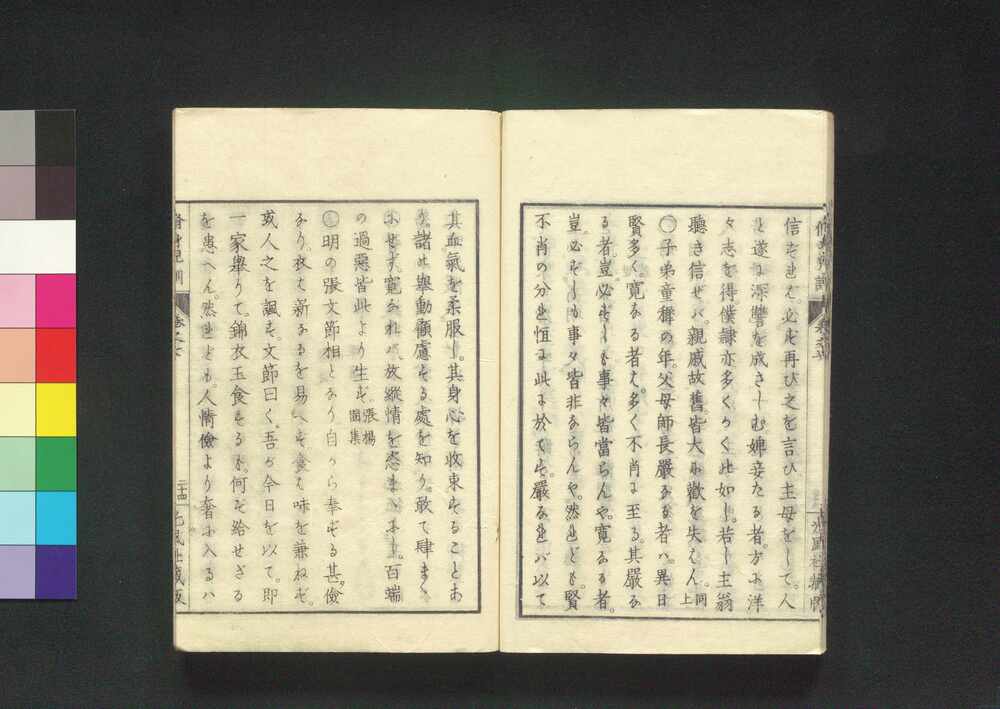 信ぜざれば。必ず再び之を言ひ主母をして。人
と遂に深讐を成さしむ婢妾たる者方に洋
々志を得僕隷亦多くかく此如し。若し主翁
聴き信ぜバ。親戚故旧皆大に歓を失はん。同上
〇子弟童穉の年。父母師長厳なる者ハ。異日
賢多く。寛なる者は。多く不肖に至る。其厳な
る者。豈必ずしも事々皆當らんや。寛なる者。
豈必ずしも事々皆非ならんや。然れども。賢
不肖の分れ恒に此に於てす。厳なれバ以て
其血氣を柔服し。其身心を收束することあ
り。諸の擧動顧慮する處を知り。敢て肆まゝ
にせず。寛なれバ。放縦情を恣まゝにし。百端
の過悪皆此より生ず。張楊園集
〇明の張文節相となり自から奉ずる甚。儉
なり。衣は新なるを易へず食は味を兼ねず。
或人之を諷す。文節曰く。吾が今日を以て。即
一家擧りて。錦衣玉食するも。何ぞ給せざる
を患へん。然れども。人情儉より奢に入るハ